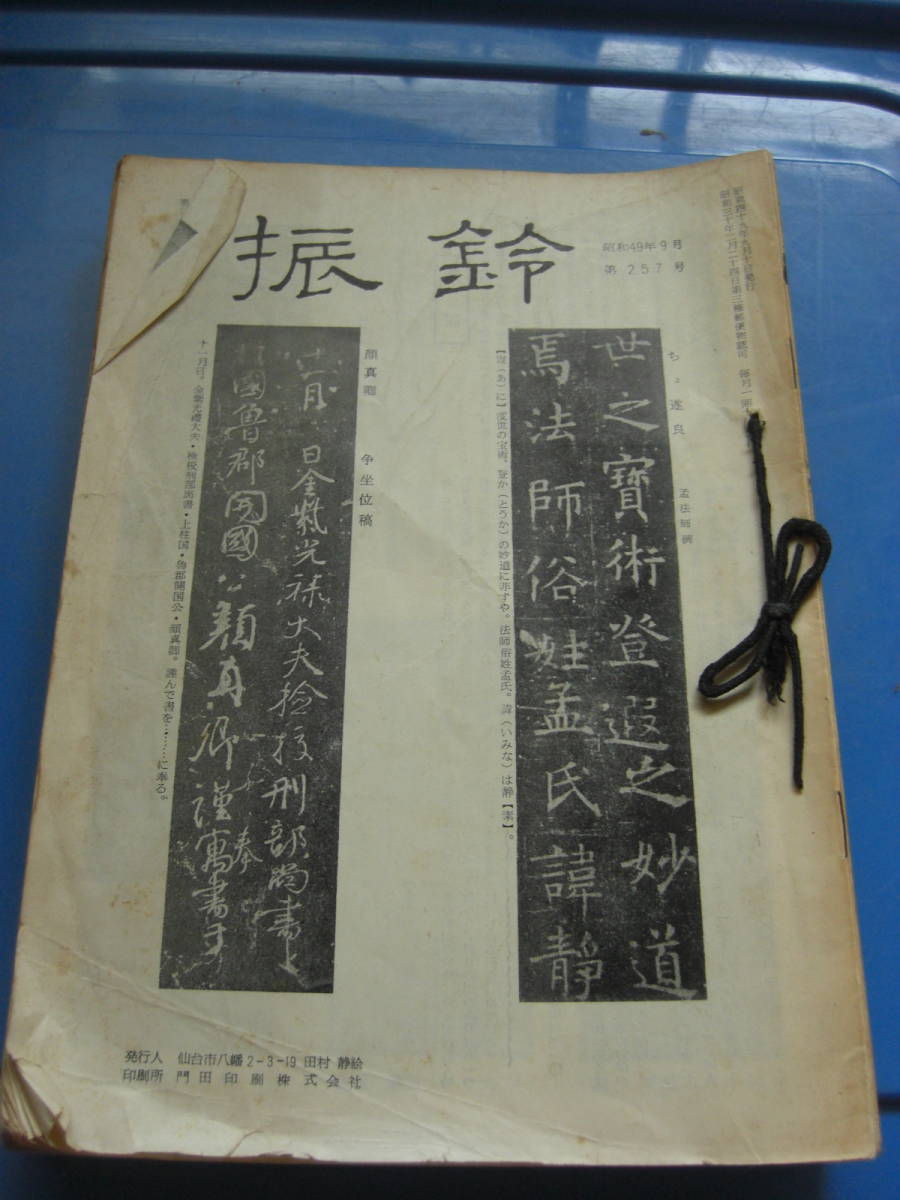 振鈴
昭和49年9月
第257号
昭和四十九年九月十日発行
昭和三十年二月二十四日第三種郵便物認可 毎月一回
ちょ遂良 孟法師碑
世之寶術登遐之妙道
焉法師俗姓孟氏諱靜
度世の宝術、登か(とうか)の妙道に非ずや。法師俗姓孟氏。諱(いみな)は静【素】。
顔真卿 争坐位稿
十一月日金紫光禄大夫検校刑部尚書上
柱國魯郡開國公顔真卿謹寓書于
奉
十一月日。金紫光禄大夫・検校刑部尚書・上柱国・魯郡開国公・顔真卿。謹んで書を………に奉る。
発行人 仙台市八幡2-3-19 田村 静絵
印刷所 門田印刷株式会社